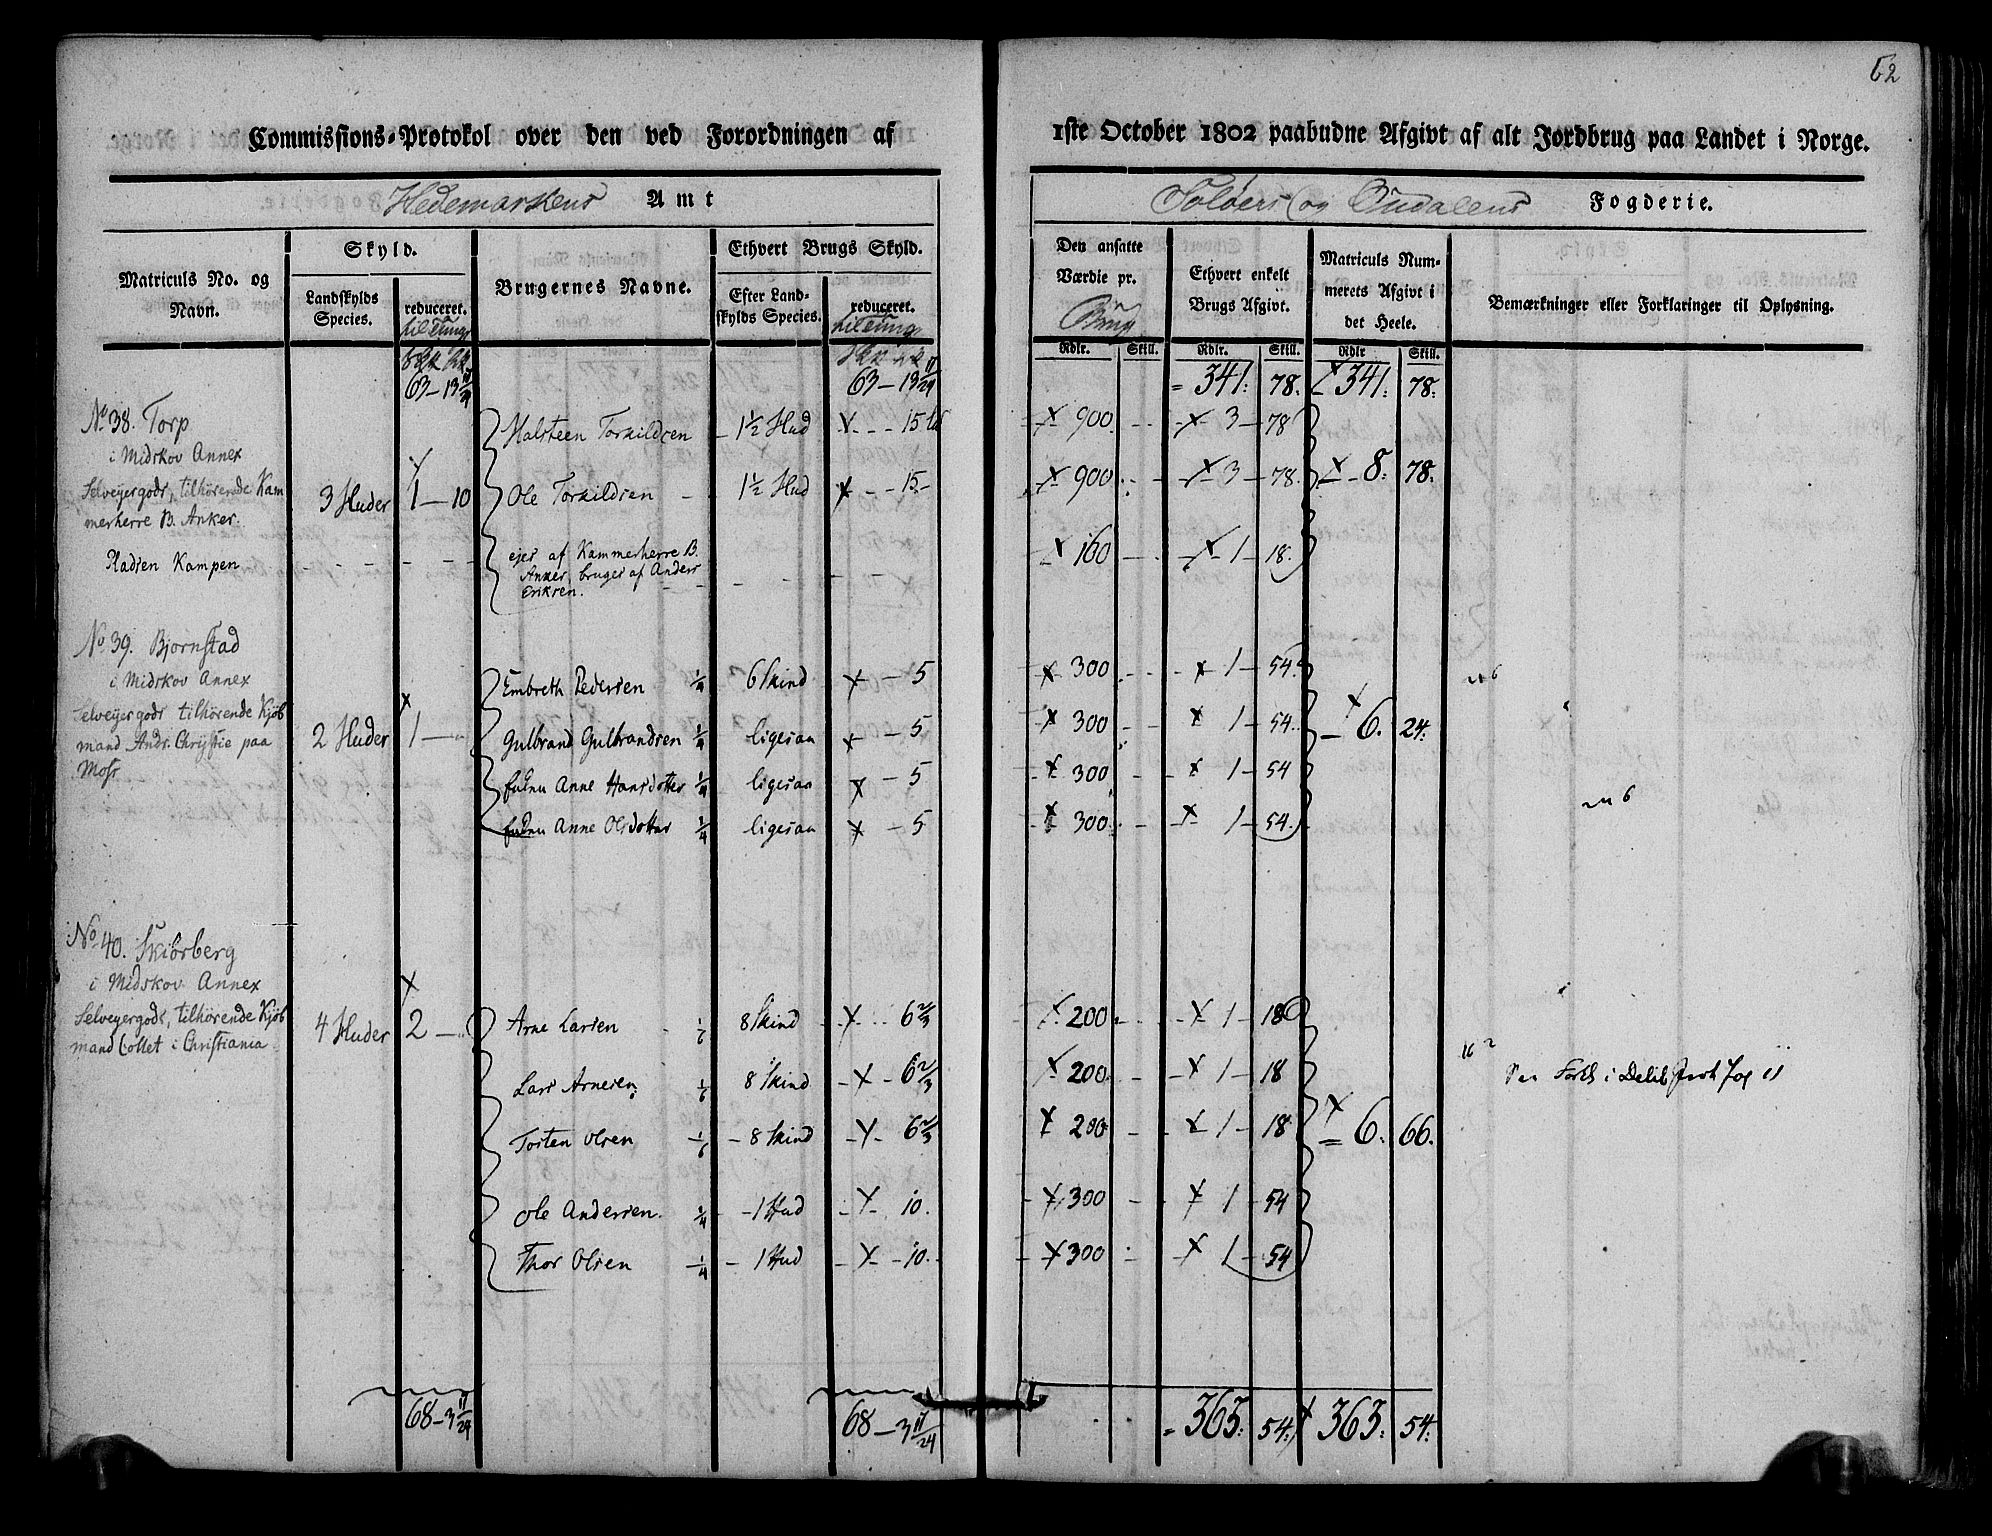 62
Commissions-Protokol over den ved Forordningen af 1ste October 1802 paabudne Afgivt af alt Jordbrug paa Landet i Norge.
Hedemarkens Amt
Soløers og Oudalens Fogderie.
Matriculs No. og Navn.
Skyld.
Landskylds Species.
reduceret.
til Tung
Brugernes Navne.
Ethvert Brugs Skyld.
Efter Landskylds Species.
reduceret.
til Tung
Den ansatte Værdie pr.
Brug
Ethvert enkelt Brugs Afgivt.
Matriculs Nummerets Afgivt i det Heele.
Bemærkninger eller Forklaringer til Oplysning.
Rdlr. Skill. Rdlr. Skill. Rdlr Skill.
63 - 13 17/24 63 - 13 17/24 = 341: 78. 341: 78:
No 38. Torp
i Midskov Annex
Selveyergods, tilhørende Kam
merherre B. Anker.
3 Huder 1 - 10
Halsteen Torkildsen - 1½ Hud - 15 900 3 - 78
Ole Torkildsen 1½ Hud - 15 900 3 - 78 8: 78.
Pladsen Kampen
ejes af Kammerherre B.
Anker, bruges af Anders
Eriksen.
160 1 - 18.
No 39. Bjornstad
i Midskov Annex
Selveyergods tilhørende Kjøb
mand Andr. Chrystie paa
Moss
2 Huder 1
Embreth Pedersen ¼ 6 Skind - 5 300 1 - 54
Gulbrand Gulbrandsen ¼ ligesaa - 5 300 1 - 54 6. 24:
Enken Anne Hansdotter ¼ ligesaa - 5 300 1 - 54
Enken Anne Olsdotter ¼ ligesaa - 5 300 1 - 54.
No 40. Skiørberg
i Midskov Annex
Selveyergods, tilhørende Kjøb
mand Collet i Christiania
4 Huder 2
Arne Larsen 1/6 8 Skind 6 2/3 200 1 - 18
Lars Arnesen 1/6 8 Skind 6 2/3 200 1 - 18
Torsten Olsen 1/6 - 8 Skind 6 2/3 200 1 - 18 6. 66.
Ole Andersen. ¼ - 1 Hud 10. 300 1 - 54
Thor Olsen ¼ - 1 Hud 10. 300 1 - 54
68 - 3 17/24 68 - 3 17/24 = 363: 54: 363: 54: